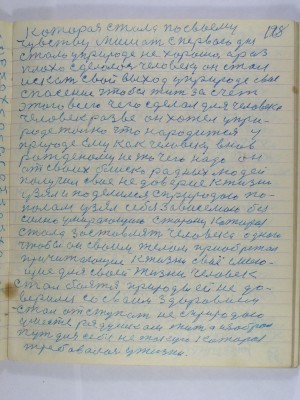 118
которая стала по своему
чувству мешать с первого дня
стало у природе не хорошо, а раз
плохо сделалось человеку он стал
искать свой выход у природе свое
спасение чтобы жить за счет
этого всего чего сделал для человека
человек разве он хотел у при-
роде точно что народится у
природе ему как человеку вновь
рожденому не то чего надо он
от своих близко родных людей
получил свое не доверие к жизни
узял и поделился с природою по-
полам узял себе зависимою без
силно умирающую сторону которая
стала заставлять человека одного
чтобы он своим телом приобретал
причитающие к жизни свое имею-
щие для своей жизни человек
стал боятся природы ей не до-
верили со своим здоровием
стал отступать не с природою
уместе рядушком жить а избрал
путь для себя не такую которая
требовалась у жизни.